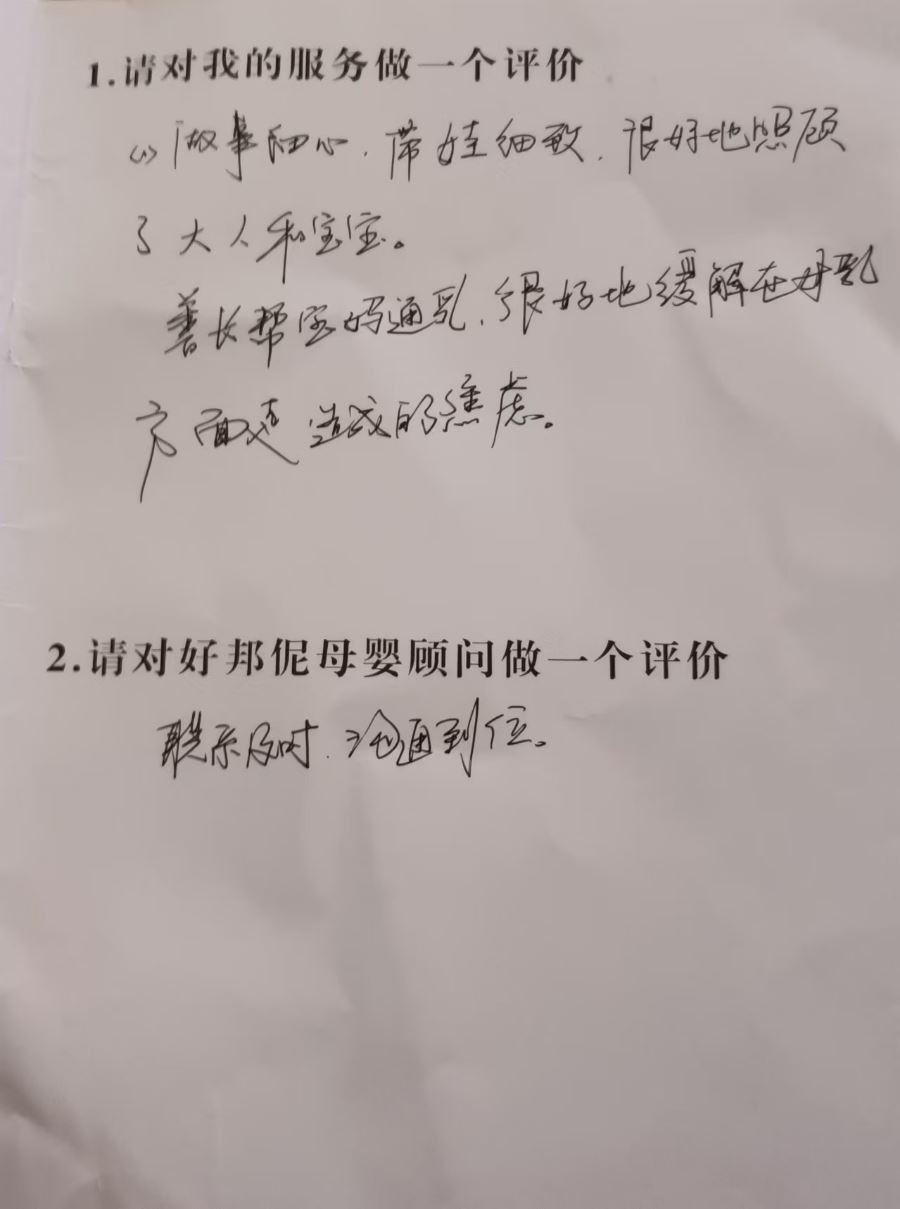 1.请对我的服务做一个评价
(1)做事细心，带娃细致，很好地照顾
了大人和宝宝。
善长帮宝妈通乳，很好地缓解在母乳
方面造成的焦虑。
2.请对好邦伲母婴顾问做一个评价
联系及时，沟通到位。